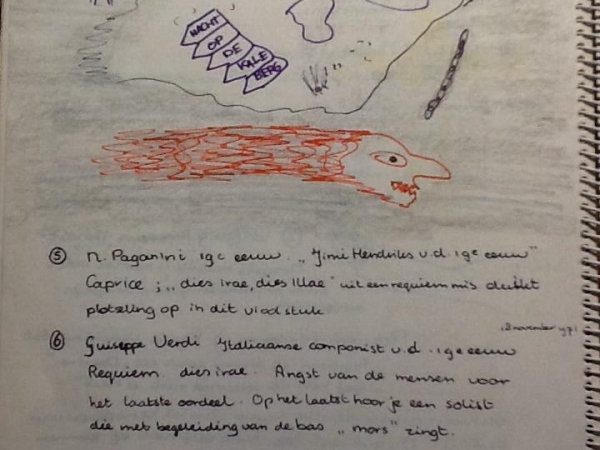 NACHT
OP
DE
KALE
BERG
5 N. Paganini 19e eeuw. „Jimi Hendriks v.d. 19e eeuw"
Caprice ; „dies irae, dies illae" uit een requiem mis duikt
plotseling op in dit vioolstuk
18 november 1971
6 Guiseppe Verdi Italiaanse componist v.d. 19e eeuw
Requiem. dies irae. Angst van de mensen voor
het laatste oordeel. Op het laatst hoor je een solist
die met begeleiding van de bas „mors" zingt.